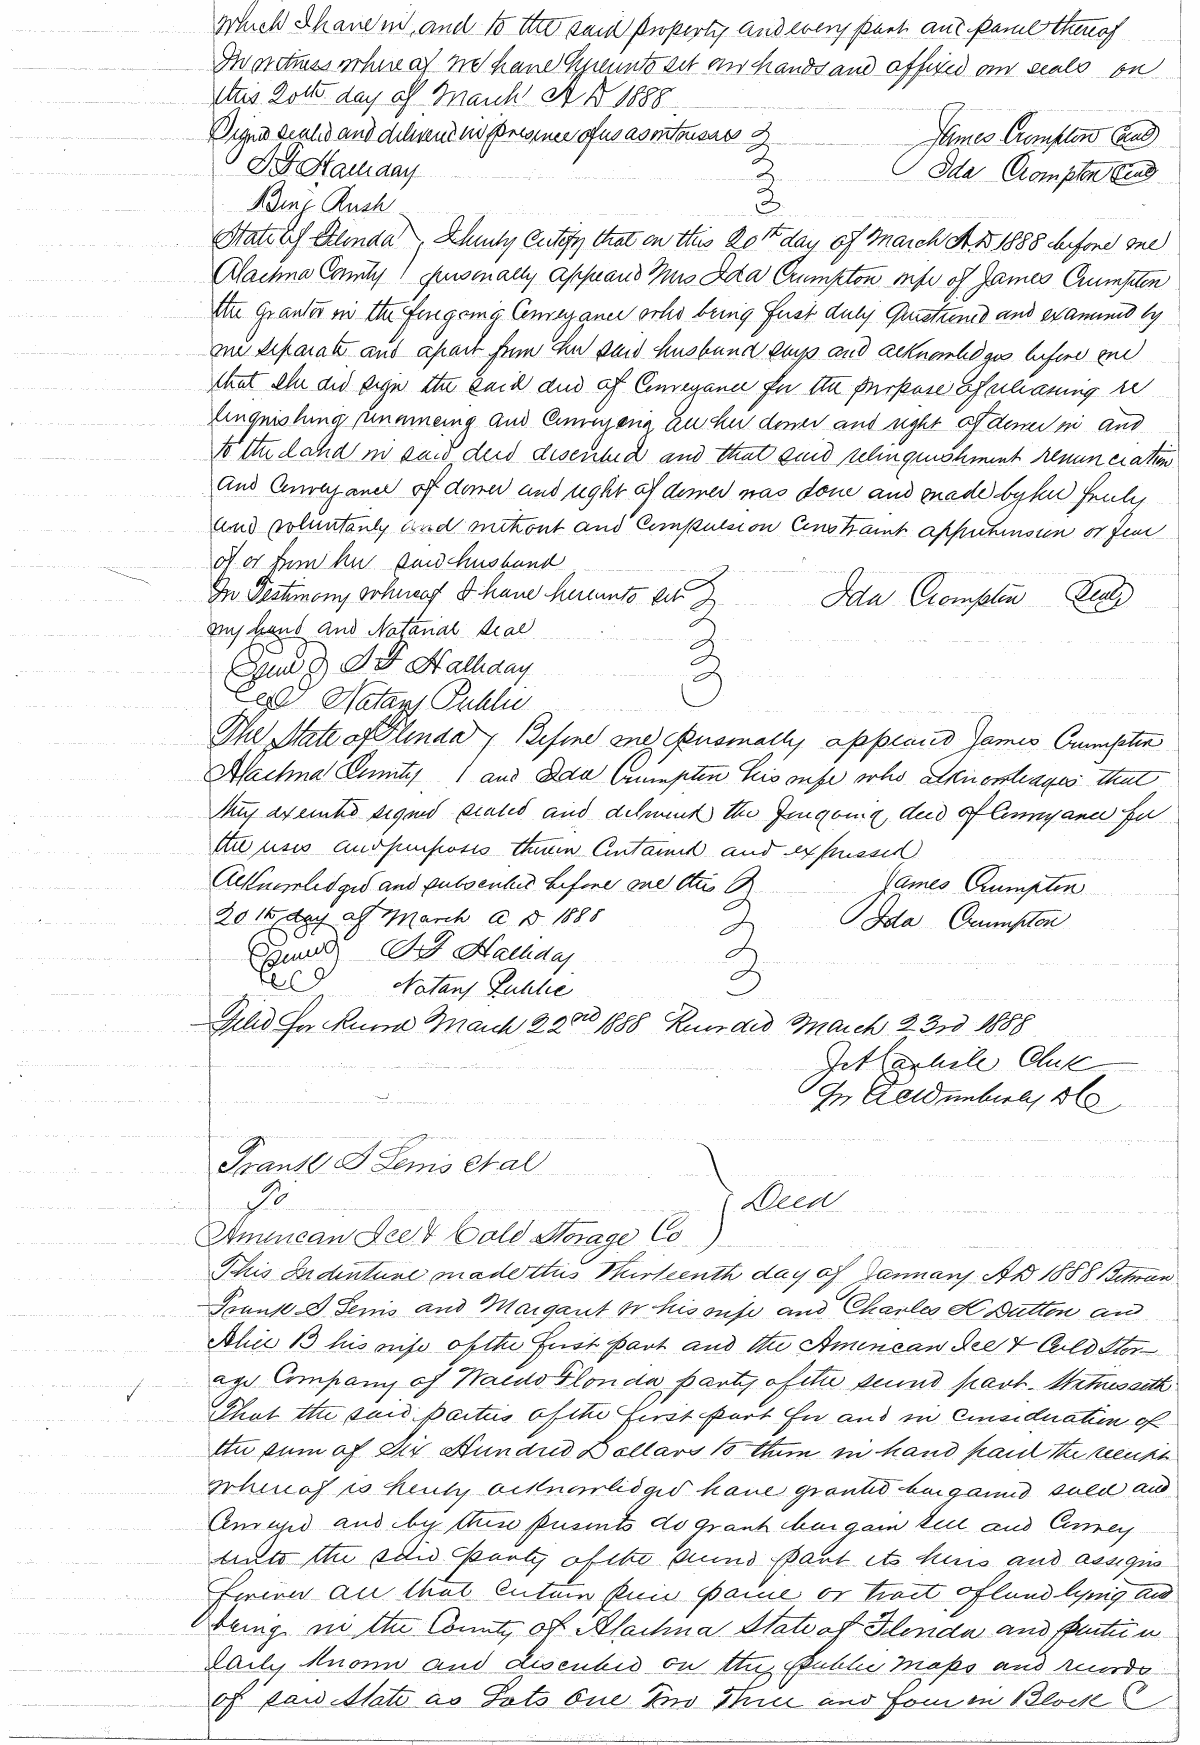 which I have in, and to the said property and every part and parcel thereof
In witness where of We have hereunto set our hands and affixed our seals on
this 20th day of March A D 1888
Signed sealed and delivered in presence of us as witnesses James Crompton Seal
S F Halliday Ida Crompton Seal
Benj Rush
State of Florida I hereby Certify that on this 20th day of March A. D 1888 before me
Alachua County personally appeared Mrs Ida Crumpton wife of James Crumpton
the grantor in the foregoing Conveyance who being first duly Questioned and examined by
me separate and apart from her said husband says and acknowledges before me
that she did sign the said deed of Conveyance for the purpose of releasing re
linquishing renouncing and Conveying all her dower and right of dower in and
to the land in said deed described and that said relinquishment renunciation
and Conveyance of dower and right of dower was done and made by her freely
and voluntarily and without and Compulsion Constraint apprehension or fear
of or from her said husband
In Testimony whereof I have hereunto set Ida Crompton Seal
my hand and Notarial seal
S F Halliday
Notary Public
The State of Florida Before me personally appeared James Crumpton
Alachua County and Ida Crumpton his wife who acknowledges that
they executed signed sealed and delivered the foregoing deed of Conveyance for
the uses and purposes therein Contained and expressed
Acknowledged and subscribed before me this James Crumpton
20th day of March A D 1888 Ida Crumpton
S F Halliday
Notary Public
Filed for Record March 22nd 1888 Recorded March 23rd 1888
Carlisle Clerk
Wimberly D C
Frank S Lewis et al
To Deed
American Ice & Cold Storage Co
This Indenture made this Thirteenth day of January A D 1888 Between
Frank S Lewis and Margaret W his wife and Charles K Dutton and
Alice B his wife of the first part and the American Ice & Cold Stor
age Company of Waldo Florida party of the second part. Witnesseth
That the said parties of the first part for and in Consideration of
the sum of Six Hundred Dollars to them in hand paid the receipt
whereof is hereby acknowledged have granted bargained sold and
Conveyed and by these presents do grant bargain sell and Convey
unto the said party of the second part its heirs and assigns
forever all that Certain piece parcel or tract of land lying and
being in the County of Alachua State of Florida and particu
larly known and described on the public maps and records
of said State as Lots One Two Three and four in Block C